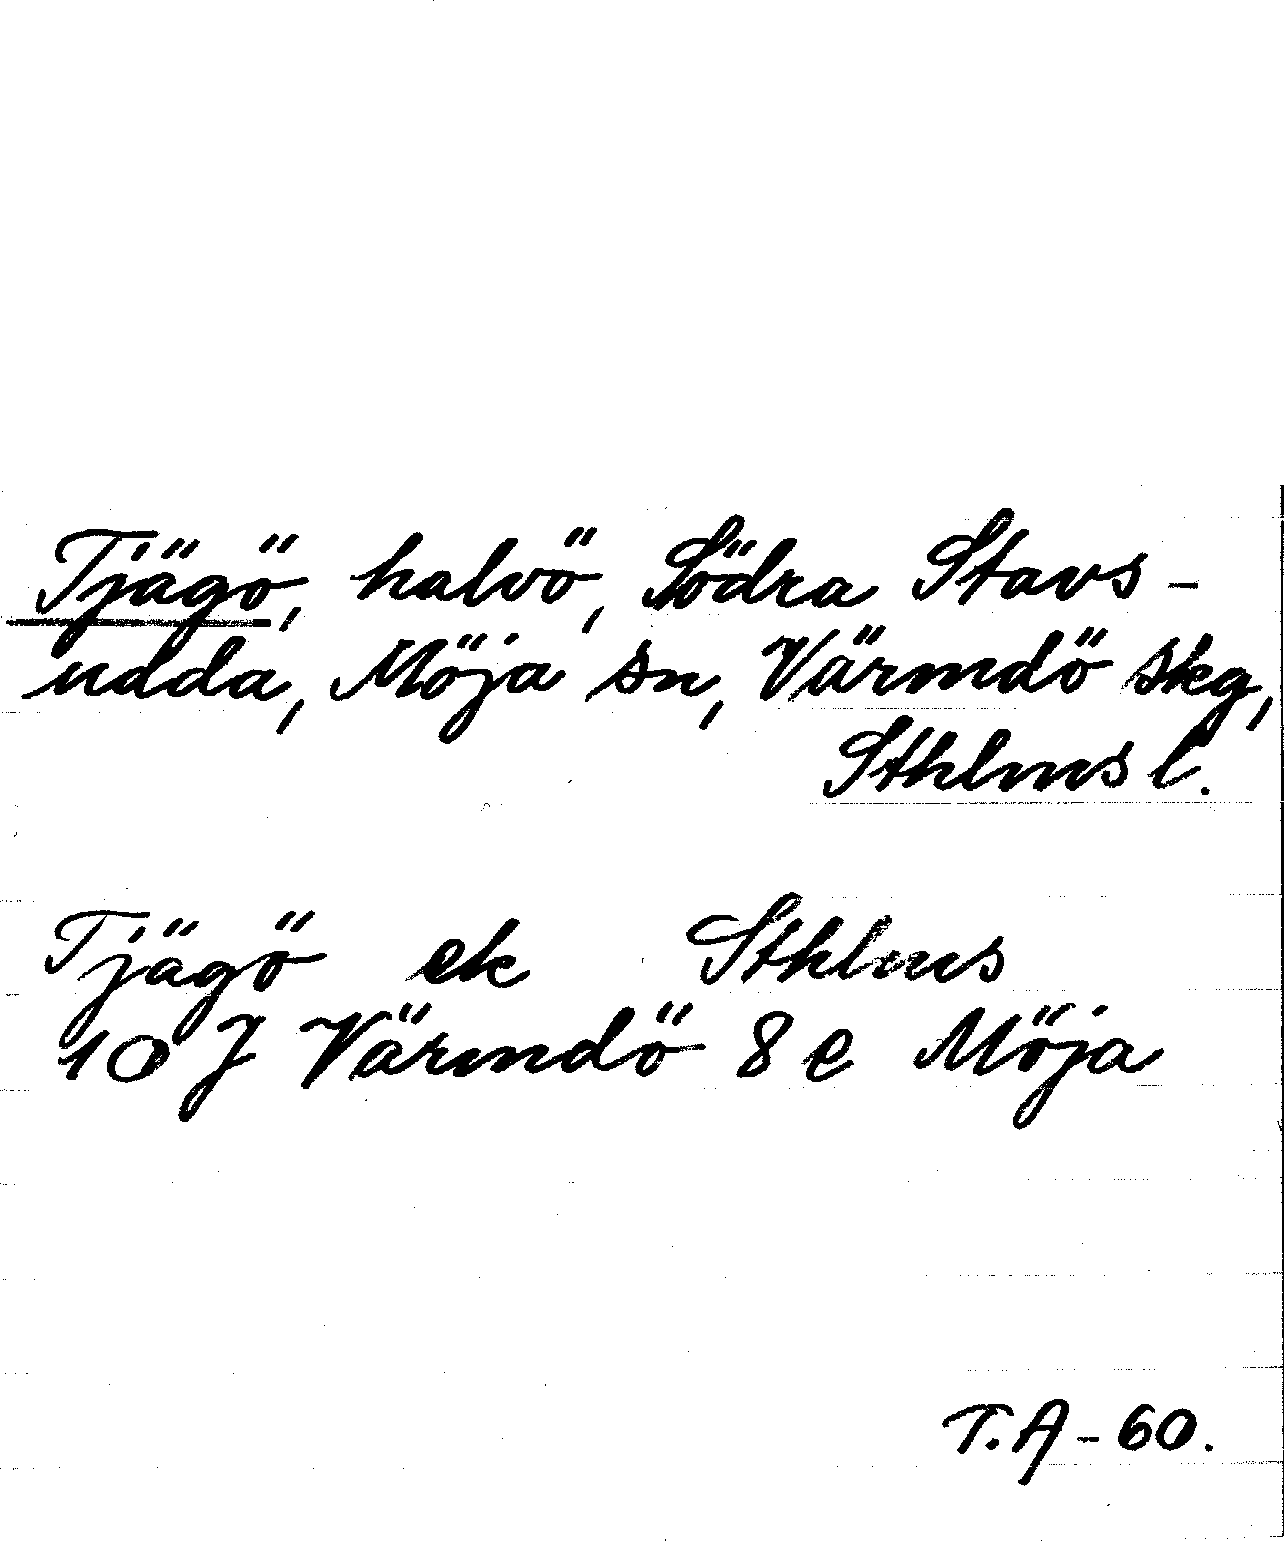 Tjägö, halvö, Södra Stavs-
udda, Möja sn, Värmdö skg,
Sthlms l.
Tjägö ek Sthlms
10 J Värmdö 8 e Möja
T.A-60.